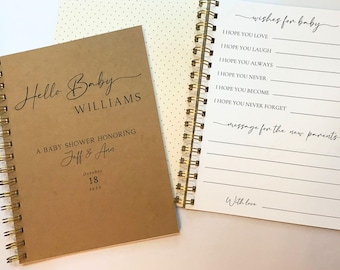 Hello Baby
WILLIAMS
A BABY SHOWER HONORING
Jeff & Ann
October
18
wishes for baby
I HOPE YOU LOVE
I HOPE YOU LAUGH
I HOPE YOU ALWAYS
I HOPE YOU NEVER
I HOPE YOU BECOME
I HOPE YOU NEVER FORGET
message for the new parents
With love